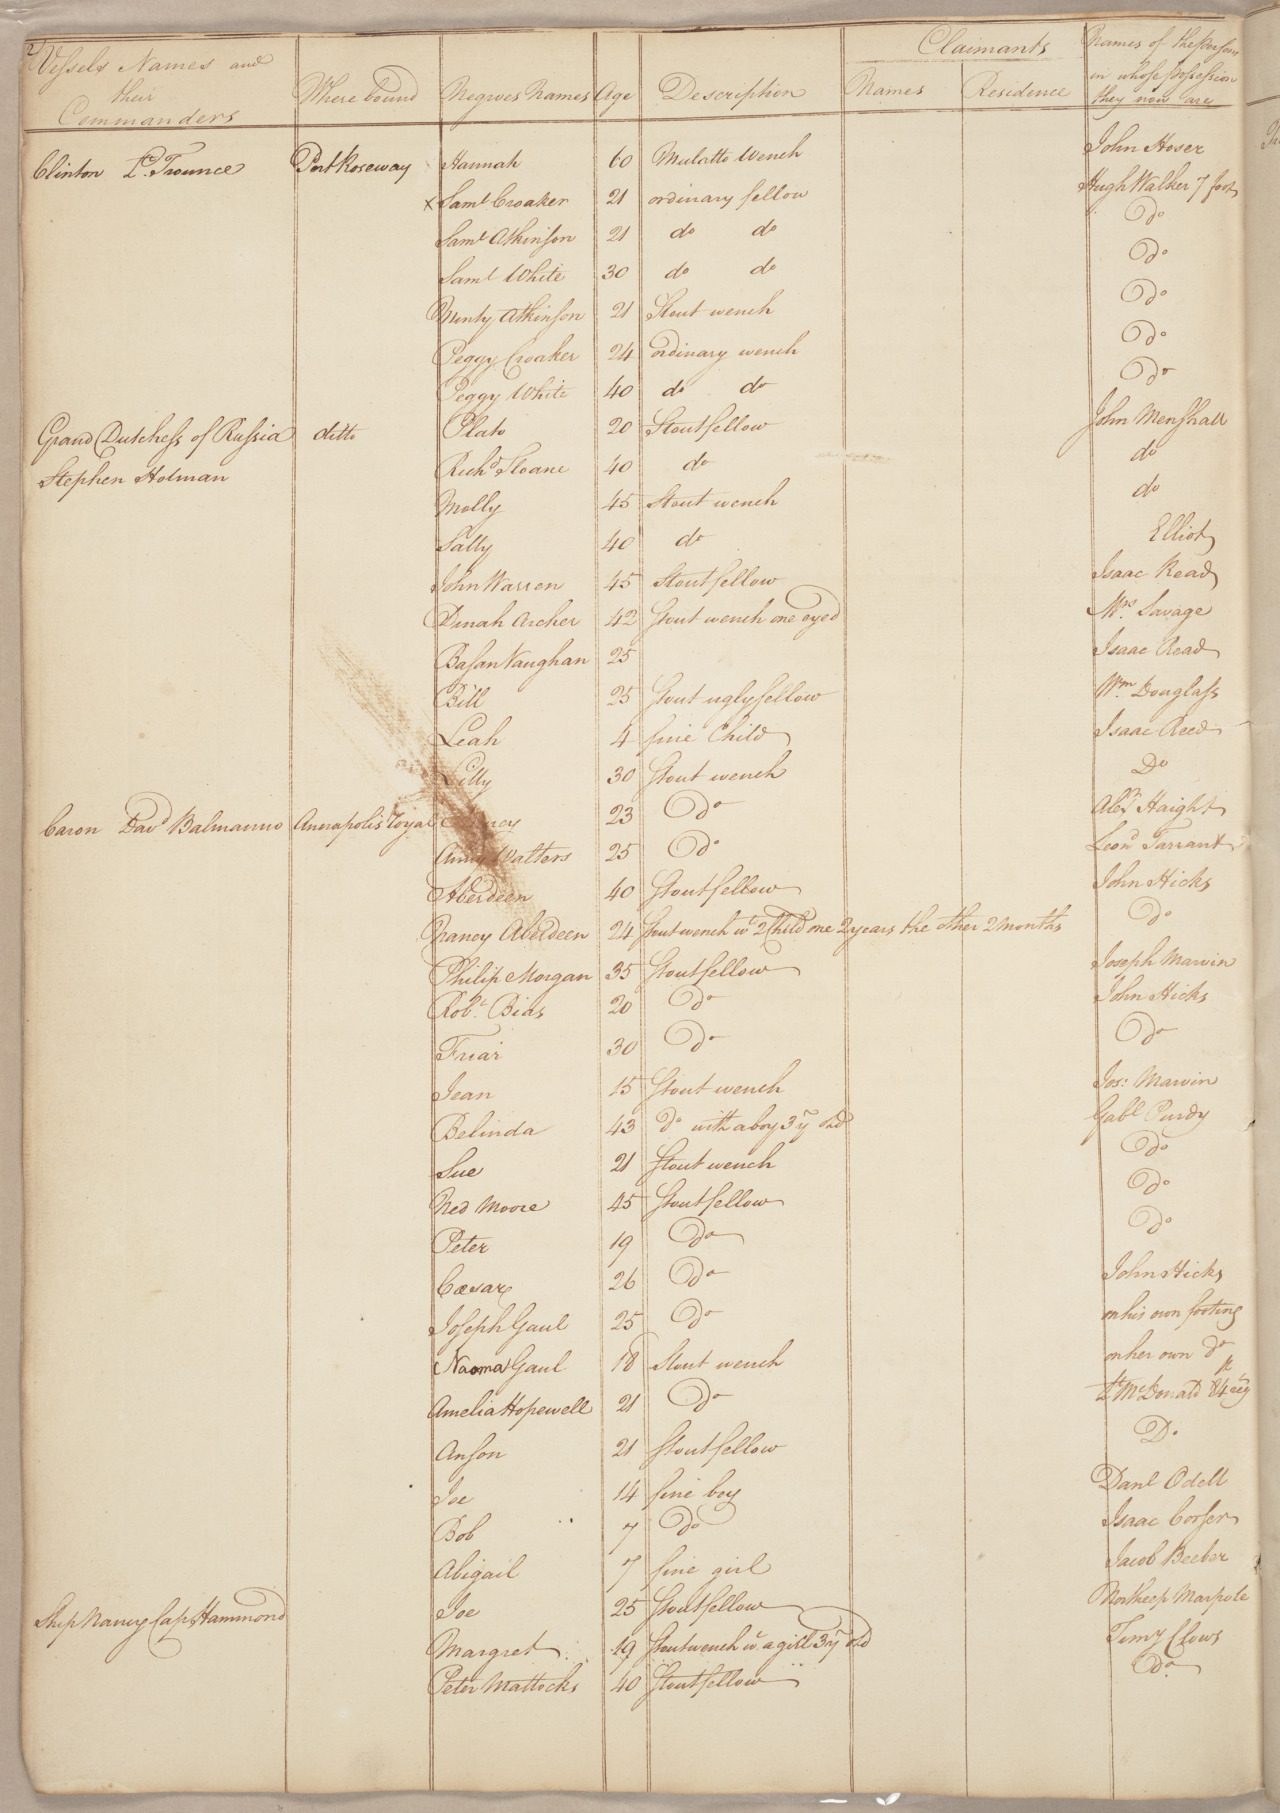 2
Vessels Names and their Commanders | Where bound | Negroes Names | Age | Description | Claimants Names | Residence | Names of the Persons in whose possession they now are
Clinton Lt. Trounce | Port Roseway | Hannah | 60 | Mulatto Wench | John Hoser
x Saml Croaker | 21 | ordinary fellow | Hugh Walker
Saml Atkinson | 21 | do do | Do
Saml White | 30 | do do | Do
Minty Atkinson | 21 | Stout wench | Do
Peggy Croaker | 24 | ordinary wench | Do
Peggy White | 40 | do do | Do
Grand Dutchess of Russia | ditto | Plato | 20 | Stout fellow | John Menshall
Stephen Holman | Richd Sloane | 40 | do | do
Molly | 45 | Stout wench | do
Sally | 40 | do | Elliot
John Warren | 45 | Stout fellow | Isaac Read
Dinah Archer | 42 | Stout wench one eyed | Mrs Savage
Basan Vaughan | 25 | Isaac Read
Bill | 25 | Stout ugly fellow | Wm Douglass
Leah | 4 | fine Child | Isaac Reed
Lilly | 30 | Stout wench | Do
Caron Davd Balmanno | Annapolis Royal | 23 | Do | Alexr Haight
Walters | 25 | Do | Leond Tarrant
Aberdeen | 40 | Stout fellow | John Hicks
Nancy Aberdeen | 24 | Stout wench wt 2 Child one 2 years the other 2 months | Do
Philip Morgan | 35 | Stout fellow | Joseph Marvin
Robt. Bias | 20 | Do | John Hicks
Friar | 30 | Do | Do
Jean | 15 | Stout wench | Jos: Marvin
Belinda | 43 | Do with a boy 3 y old | Gabl Purdy
Sue | 21 | Stout wench | Do
Ned Moore | 45 | Stout fellow | Do
Peter | 19 | Do | Do
Caesar | 26 | Do | John Hicks
Joseph Gaul | 25 | Do | on his own footing
Naoma Gaul | 18 | Stout wench | on her own Do
Amelia Hopewell | 21 | Do | Lt McDonald 84 reg
Anson | 21 | Stout fellow | Do
Joe | 14 | fine boy | Danl Odell
Bob | 7 | Do | Isaac Corser
Abigail | 7 | fine girl | Jacob Beeber
Ship Nancy Cap. Hammond | Joe | 25 | Stout fellow | Northeep Marpole
Margret | 19 | Stout wench wt a girl 3 y old | Timy Clows
Peter Mattocks | 40 | Stout fellow | Do